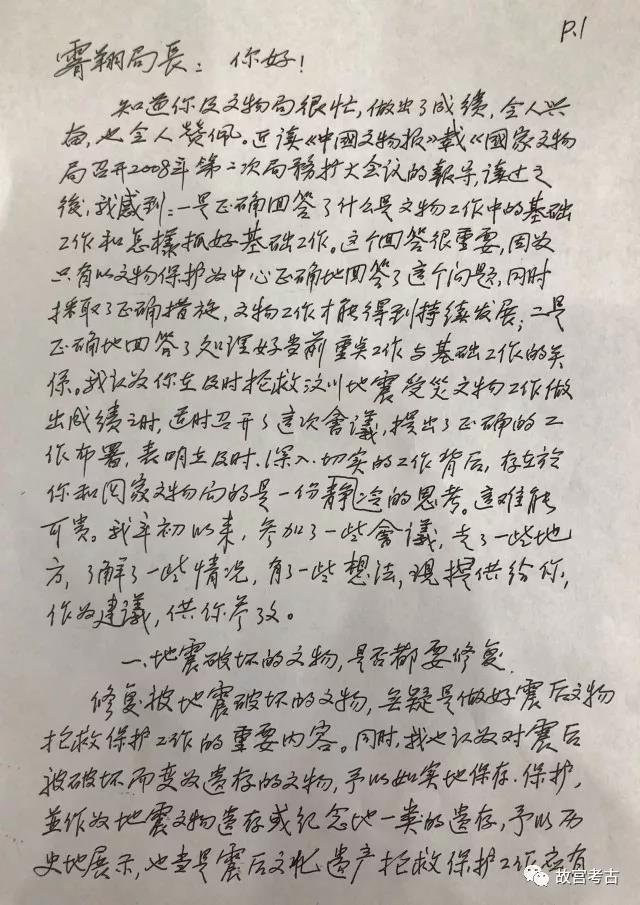 P.1
霽翔局長：你好！
知道你及文物局很忙，做出了成绩，令人兴
奋，也令人赞佩。近读《中國文物报》载《國家文物
局召开2008年第二次局務扩大会议的報导，读过之
後，我感到：一是正确回答了什么是文物工作中的基础
工作和怎样抓好基础工作。这个回答很重要，因为
只有以文物保护为中心正确地回答了這个问题，同时
採取了正确措施，文物工作才能得到持续发展；二是
正确地回答了処理好当前重点工作与基础工作的关
係。我认为你在及时抢救汶川地震受災文物工作做
出成绩之时，适时召开了這次會議，提出了正确的工
作布署，表明在及时、深入、切实的工作背后，存在於
你和国家文物局的是一份静冷的思考。這难能
可贵。我年初以来，参加了一些會議，走了一些地
方，了解了一些情况，有了一些想法，现提供给你，
作为建議，供你参攷。
一、地震破坏的文物，是否都要修复
修复被地震破坏的文物，无疑是做好震后文物
抢救保护工作的重要内容。同时，我也认为对震后
被破坏而变为遗存的文物，予以如实地保存、保护，
並作为地震文物遗存或纪念地一类的遗存，予以历
史地展示，也当是震后文化遗产抢救保护工作应有
故宫考古